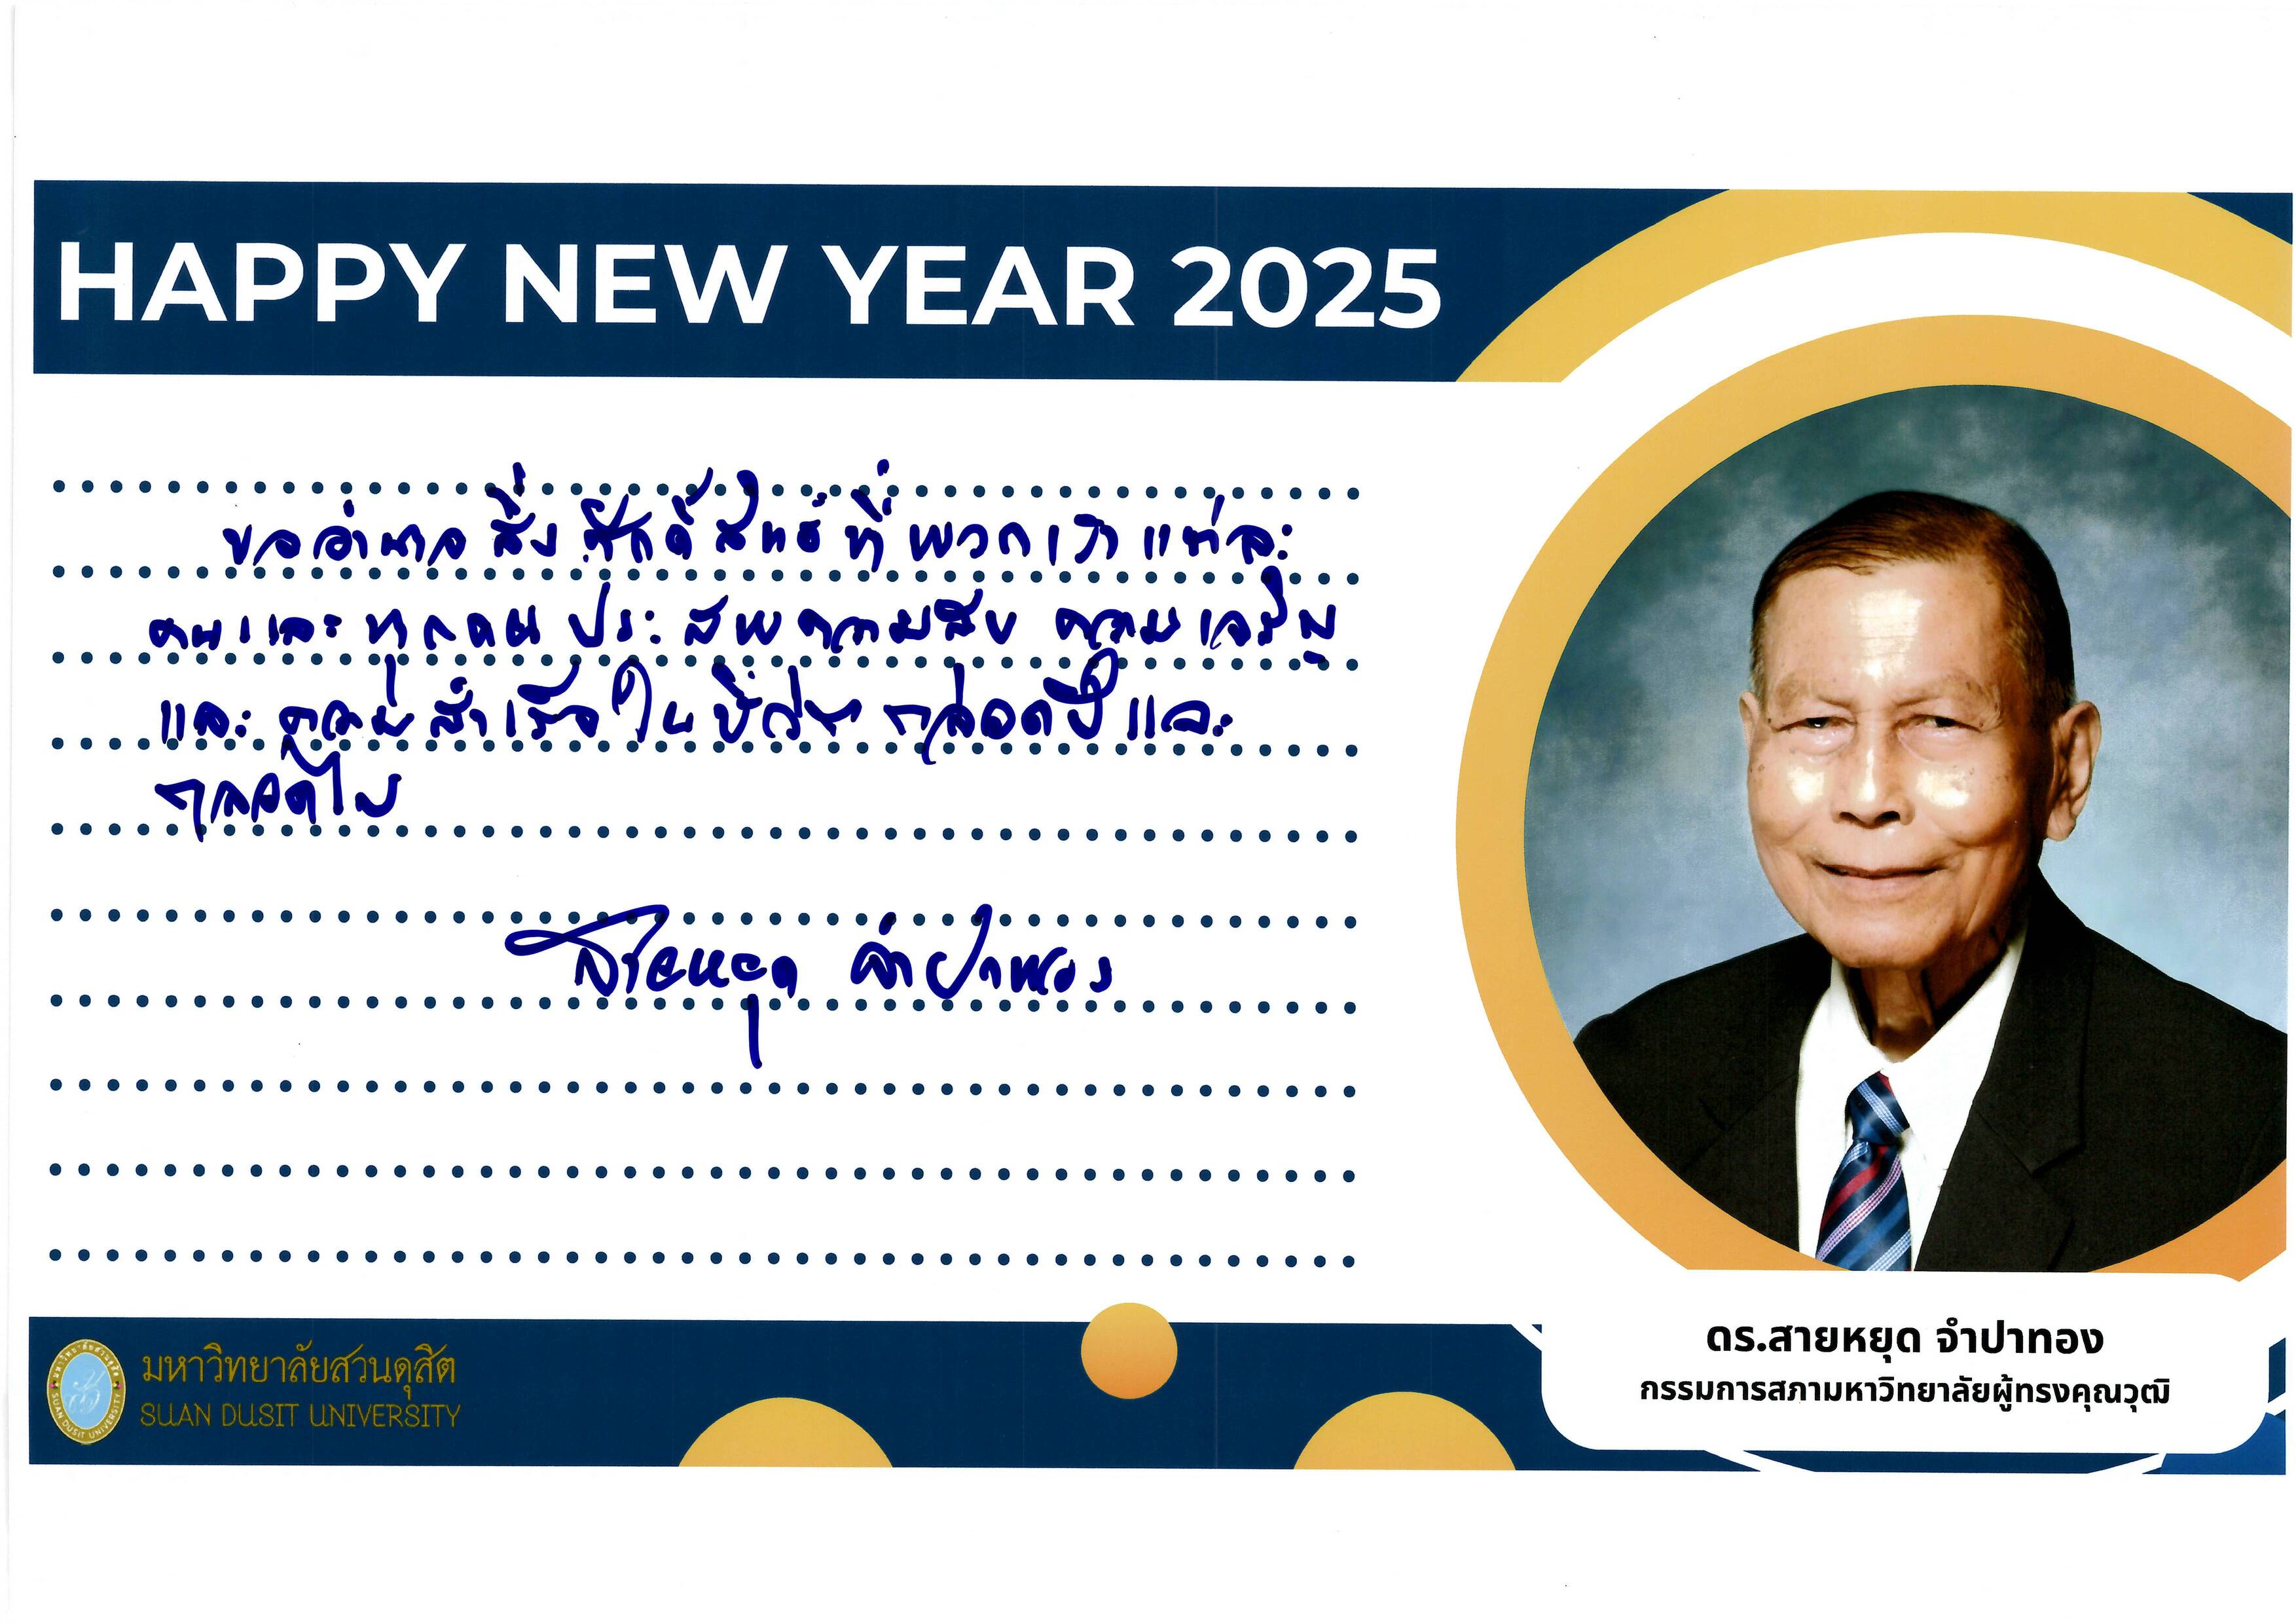 HAPPY NEW YEAR 2025
ขออำนาจสิ่งศักดิ์สิทธิ์ที่พวกเราแต่ละ
คนและทุกคน ประสพความสุข ความเจริญ
และความสำเร็จในชีวิต ตลอดปีและ
ตลอดไป
สายหยุด จำปาทอง
ดร.สายหยุด จำปาทอง
กรรมการสภามหาวิทยาลัยผู้ทรงคุณวุฒิ
มหาวิทยาลัยสวนดุสิต
SUAN DUSIT UNIVERSITY